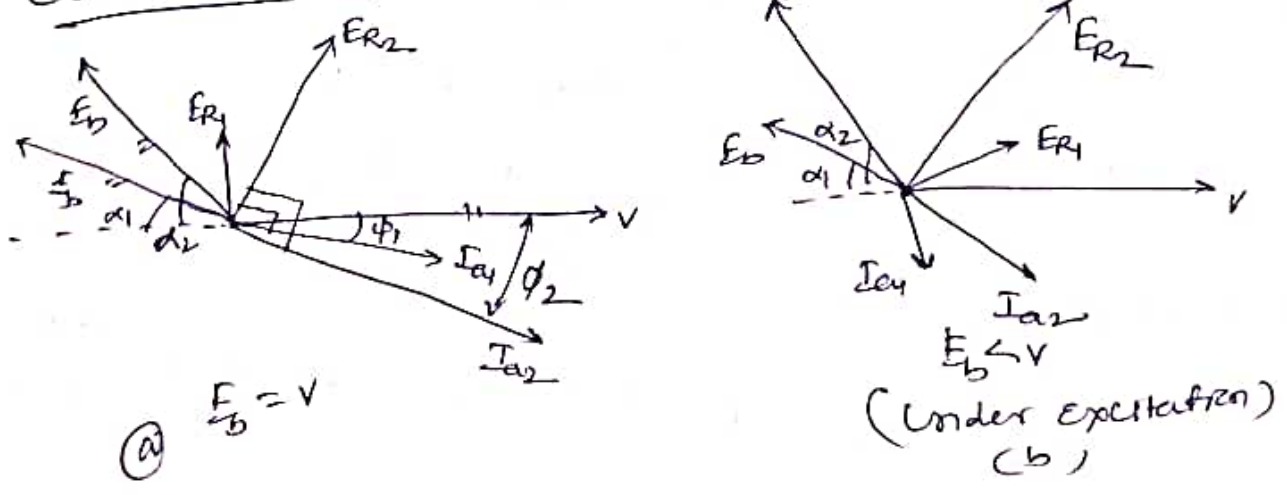 E_R2
E_b
E_R1
E_b
α1
α2
φ1
V
I_a1
φ2
I_a2
E_b = V
(a)
E_R2
E_b
α2
α1
E_R1
V
I_a1
I_a2
E_b < V
(Under Excitation)
(b)